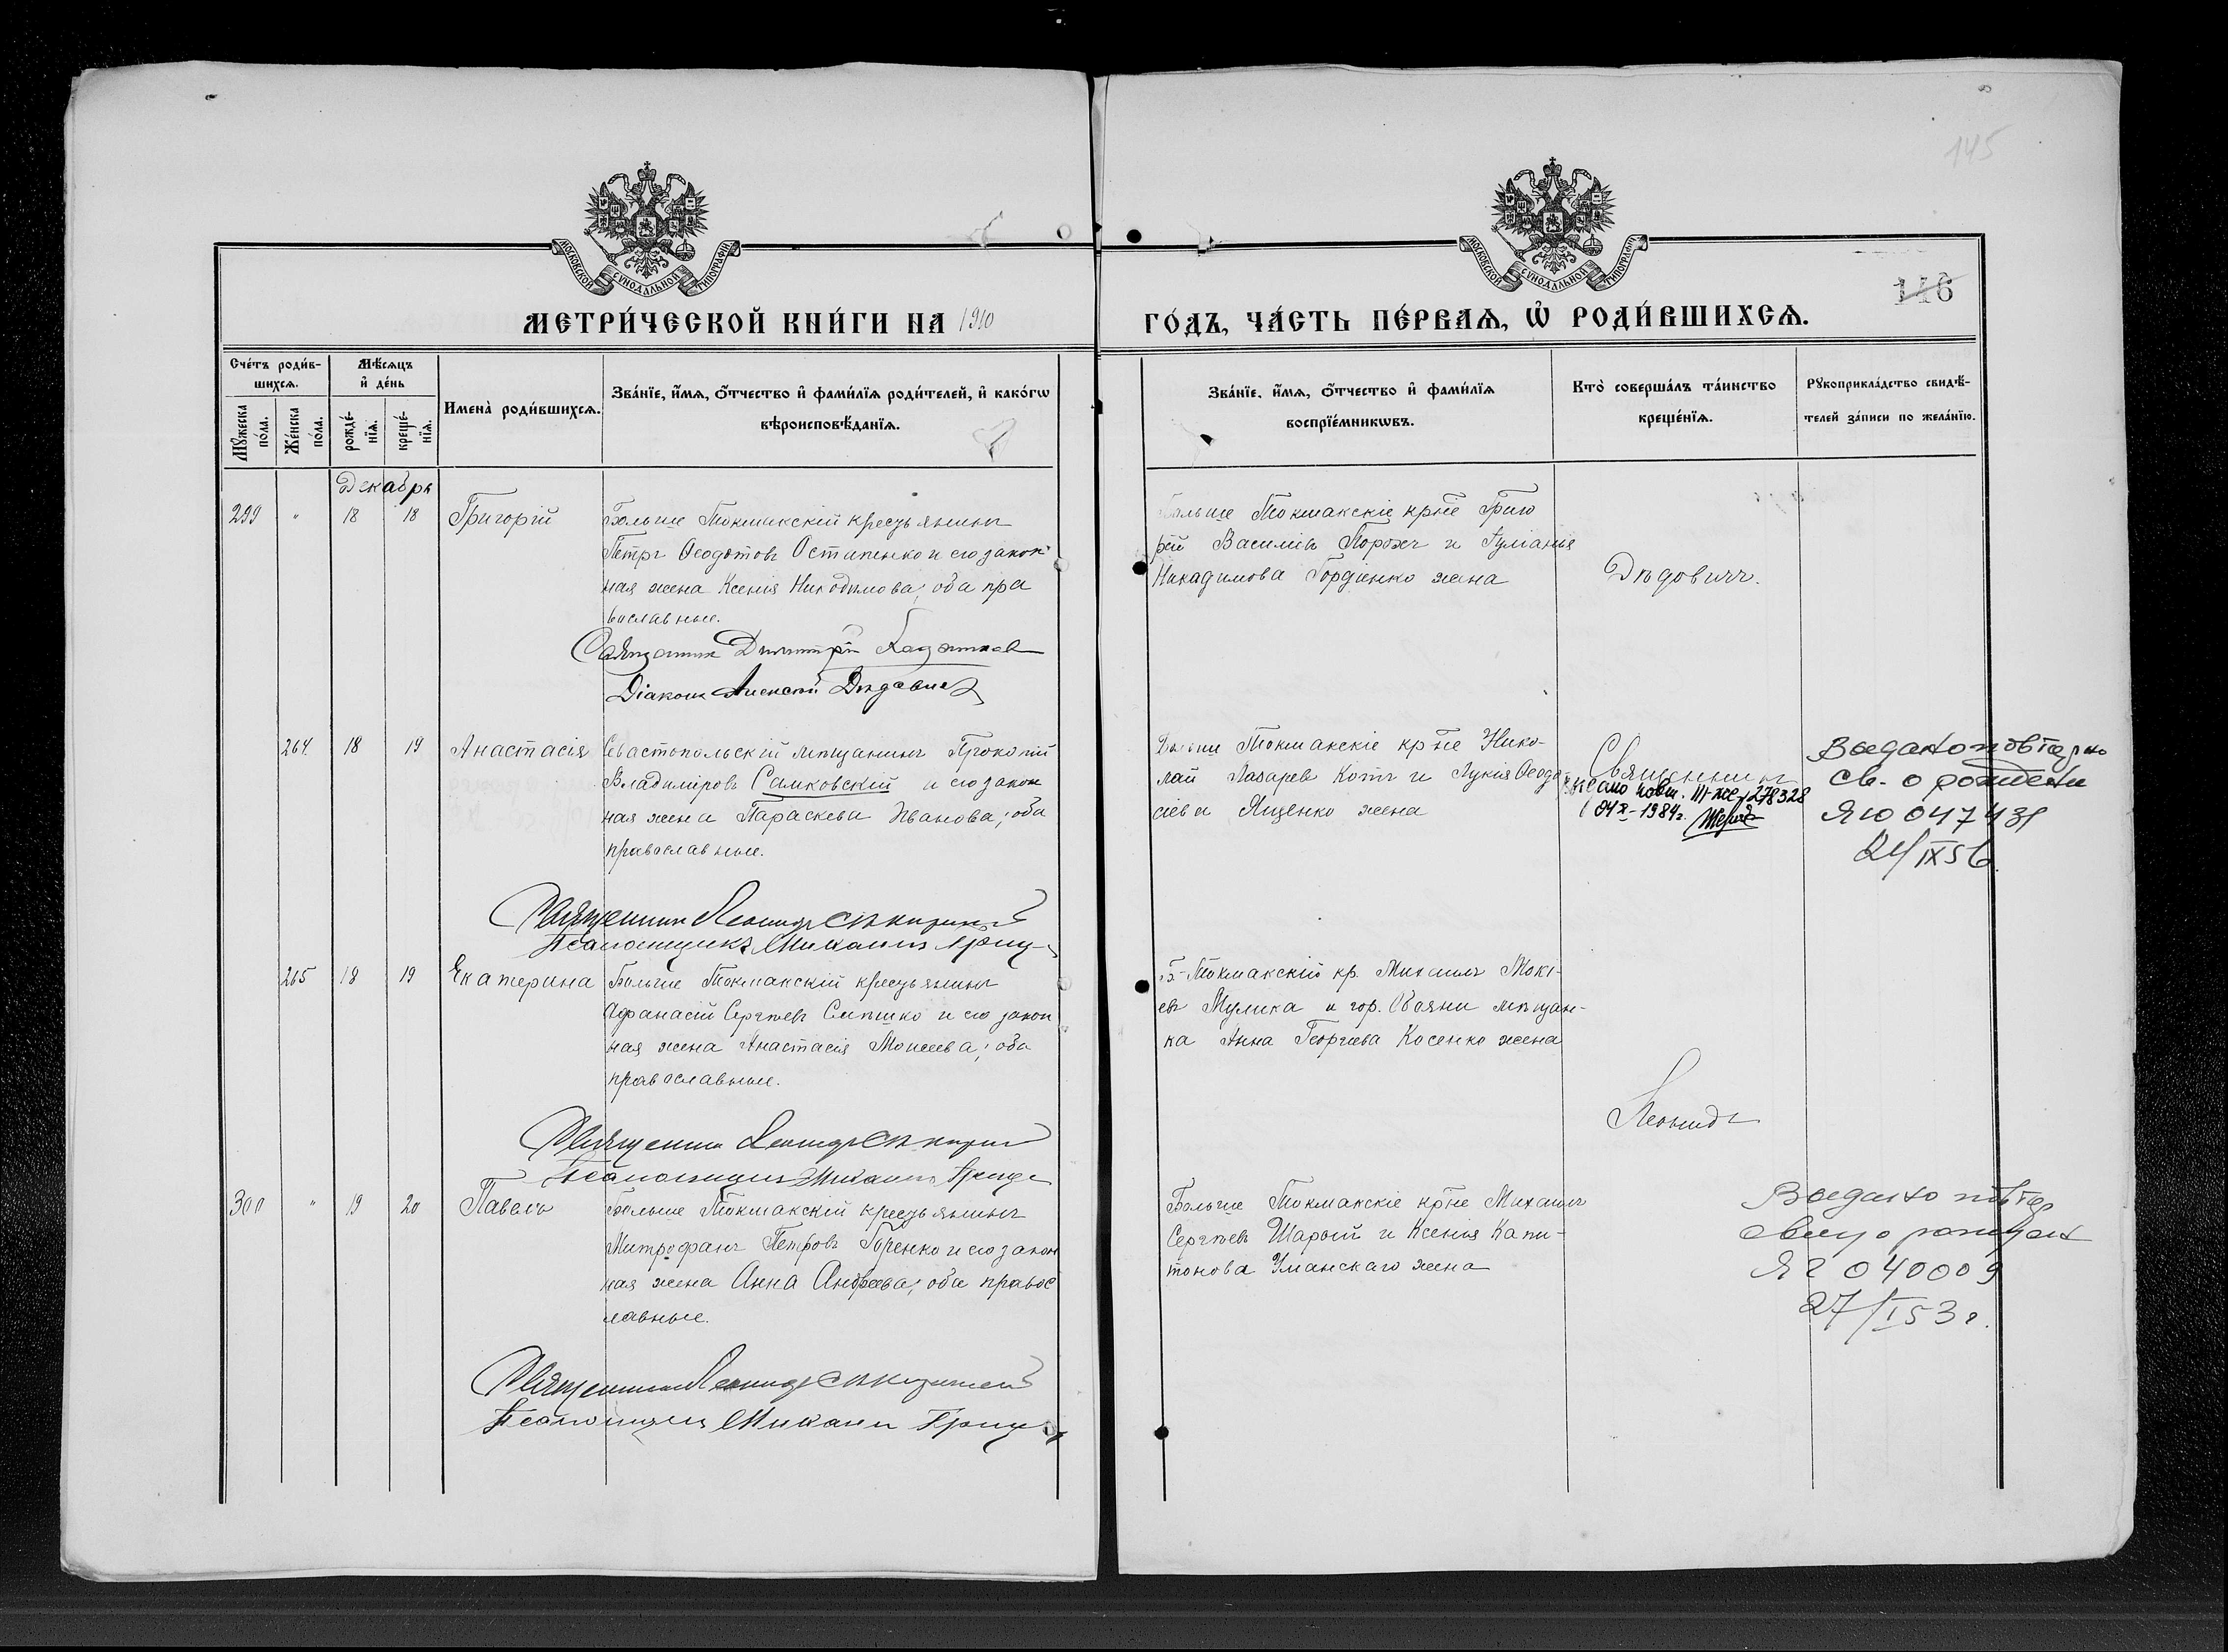 145
МОСКОВСКОЙ СѴНОДАЛЬНОЙ ТИПОГРАФІИ
МОСКОВСКОЙ СѴНОДАЛЬНОЙ ТИПОГРАФІИ
146
МЕТРИ́ЧЕСКОЙ КНИ́ГИ НА 1910
ГО́ДЪ, ЧА́СТЬ ПЕ́РВАѦ, Ѡ҆ РОДИ́ВШИХСѦ.
Сче́тъ роди́в-
шихсѧ.
Мꙋ́жеска по́ла.
Же́нска по́ла.
Мѣ́сѧцъ
и҆ де́нь
рожде́-
нїѧ.
креще́-
нїѧ.
Имена̀ роди́вшихсѧ.
Зва́нїе, и҆́мѧ, ѻ҆́тчество и҆ фами́лїѧ роди́телей, и҆ како́гѡ
вѣроисповѣ́данїѧ.
Зва́нїе, и҆́мѧ, ѻ҆́тчество и҆ фами́лїѧ
воспрїе́мникѡвъ.
Кто̀ соверша́лъ та́инство
креще́нїѧ.
Рꙋкоприкла́дство свидѣ́-
телей за́писи по жела́нїю.
Декабрь
299 " 18 18 Григорій
Больше Токмакскій крестьянинъ
Петръ Ѳеодотовъ Остапенко и его закон
ная жена Ксенія Никодимова; оба пра
вославные.
Священникъ Димитрій
Діаконъ Алексій Дѣдовичъ
Больше Токмакскіе кр҃не Григо
рій Василіевъ Порохъ и
Никадимова Гордіенко жена
Дѣдовичъ.
264. 18 19 Анастасія
Севастопольскій мѣщанинъ Прокопій
Владиміровъ Самковскій и его закон
ная жена Параскева Иванова; оба
православные.
Священник Леонидъ
Псаломщикъ Михаилъ
Больше Токмакскіе кр҃не Нико-
лай Лазаревъ Котъ и Лукія Ѳеодо
сіева Яценко жена
Священникъ
повт. III-жс 278328
04 X - 1984г.
Выдано повторно
св. о рождении
ЯЮ 047431
24/IX 56
265 18 19 Екатерина
Больше Токмакскій крестьянинъ
Афанасій Сергѣевъ Сипшко и его закон
ная жена Анастасія Моисеева; оба
православные.
Священник Леонидъ
Псаломщикъ Михаилъ
Б-Токмакскій кр. Михаилъ Мокі-
евъ Мулика и гор. Обояни мѣщан-
ка Анна Георгіева Косенко жена
Леонидъ
300 " 19 20 Павелъ
Больше Токмакскій крестьянинъ
Митрофанъ Петровъ Горенко и его закон
ная жена Анна Андреева; оба правос
лавные.
Священник Леонидъ
Псаломщикъ Михаилъ
Больше Токмакскіе кр҃не Михаилъ
Сергѣевъ Шарый и Ксенія Капи-
тонова Уманскаго жена
Выдано повтор
свид о рожден
ЯГ 040009
27/I 53 г.